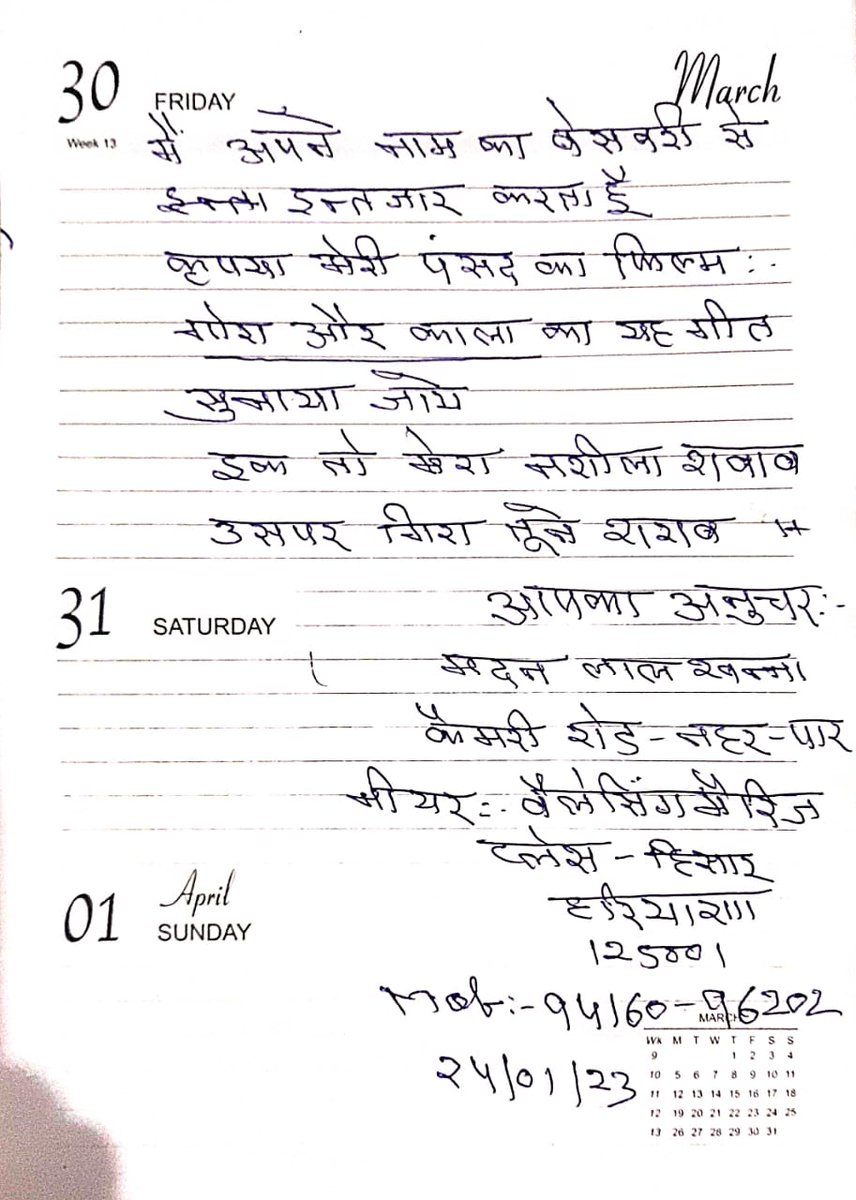 30 FRIDAY March
Week 13
मैं अपने नाम का बेसबरी से
इन्तजार करता है
कृपया मेरी पंसद का फिल्म :-
गोरा और काला का यह गीत
सुनाया जाये
इक तो मेरा नशीला शबाब
उसपर गिरा तूने शराब
31 SATURDAY
आपका अनुचर:-
मदन लाल खन्ना
कैमरी रोड - नहर - पार
नीयर:- वैलेसिंग मैरिज
प्लेस - हिसार
हरियाणा
125001
01 April
SUNDAY
Mob:- 94160-96202
24/01/23
MARCH
Wk M T W T F S S
9 1 2 3 4
10 5 6 7 8 9 10 11
11 12 13 14 15 16 17 18
12 19 20 21 22 23 24 25
13 26 27 28 29 30 31